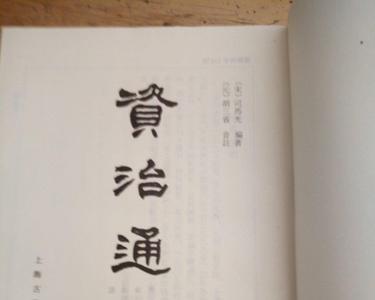 〔宋〕司馬光 編著
〔元〕胡三省 音註
資治通
上海古